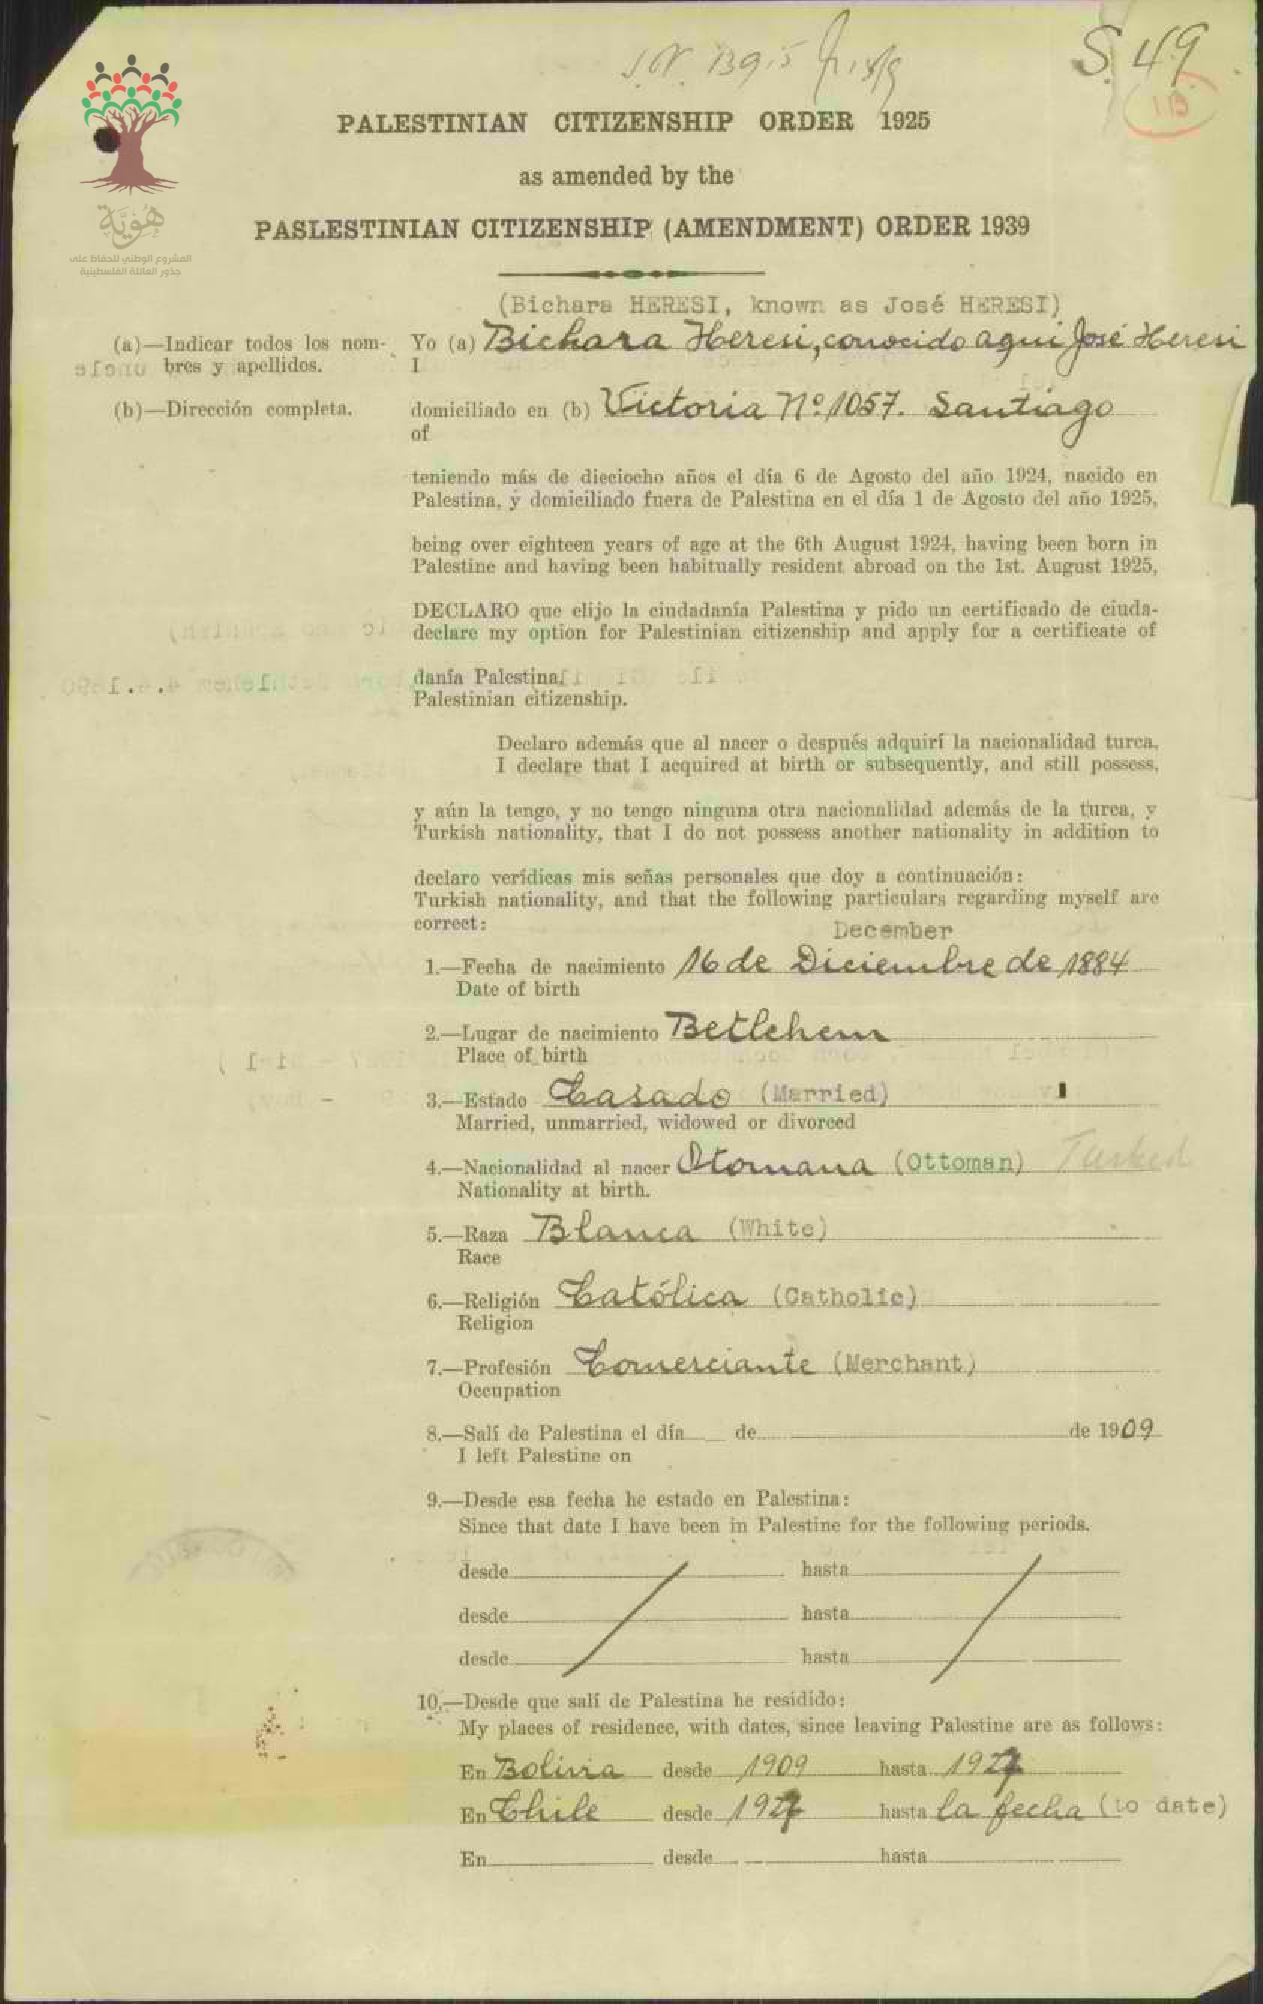 S. 49
1B
هُويَّة
المشروع الوطني للحفاظ على
جذور العائلة الفلسطينية
PALESTINIAN CITIZENSHIP ORDER 1925
as amended by the
PASLESTINIAN CITIZENSHIP (AMENDMENT) ORDER 1939
(Bichara HERESI, known as José HERESI)
(a)—Indicar todos los nom- Yo (a) Bichara Heresi, conocido aqui José Heresi
bres y apellidos. I
(b)—Dirección completa. domiciliado en (b) Victoria Nº 1057. Santiago
of
teniendo más de dieciocho años el día 6 de Agosto del año 1924, nacido en
Palestina, y domiciliado fuera de Palestina en el día 1 de Agosto del año 1925,
being over eighteen years of age at the 6th August 1924, having been born in
Palestine and having been habitually resident abroad on the 1st. August 1925,
DECLARO que elijo la ciudadanía Palestina y pido un certificado de ciuda-
declare my option for Palestinian citizenship and apply for a certificate of
danía Palestina.
Palestinian citizenship.
Declaro además que al nacer o después adquirí la nacionalidad turca,
I declare that I acquired at birth or subsequently, and still possess,
y aún la tengo, y no tengo ninguna otra nacionalidad además de la turca, y
Turkish nationality, that I do not possess another nationality in addition to
declaro verídicas mis señas personales que doy a continuación:
Turkish nationality, and that the following particulars regarding myself are
correct:
December
1.—Fecha de nacimiento 16 de Diciembre de 1884
Date of birth
2.—Lugar de nacimiento Betlehem
Place of birth
3.—Estado Casado (Married)
Married, unmarried, widowed or divorced
4.—Nacionalidad al nacer Otomana (Ottoman)
Nationality at birth.
5.—Raza Blanca (White)
Race
6.—Religión Católica (Catholic)
Religion
7.—Profesión Comerciante (Merchant)
Occupation
8.—Salí de Palestina el día de de 1909
I left Palestine on
9.—Desde esa fecha he estado en Palestina:
Since that date I have been in Palestine for the following periods.
desde hasta
desde hasta
desde hasta
10.—Desde que salí de Palestina he residido:
My places of residence, with dates, since leaving Palestine are as follows:
En Bolivia desde 1909 hasta 1927
En Chile desde 1927 hasta la fecha (to date)
En desde hasta